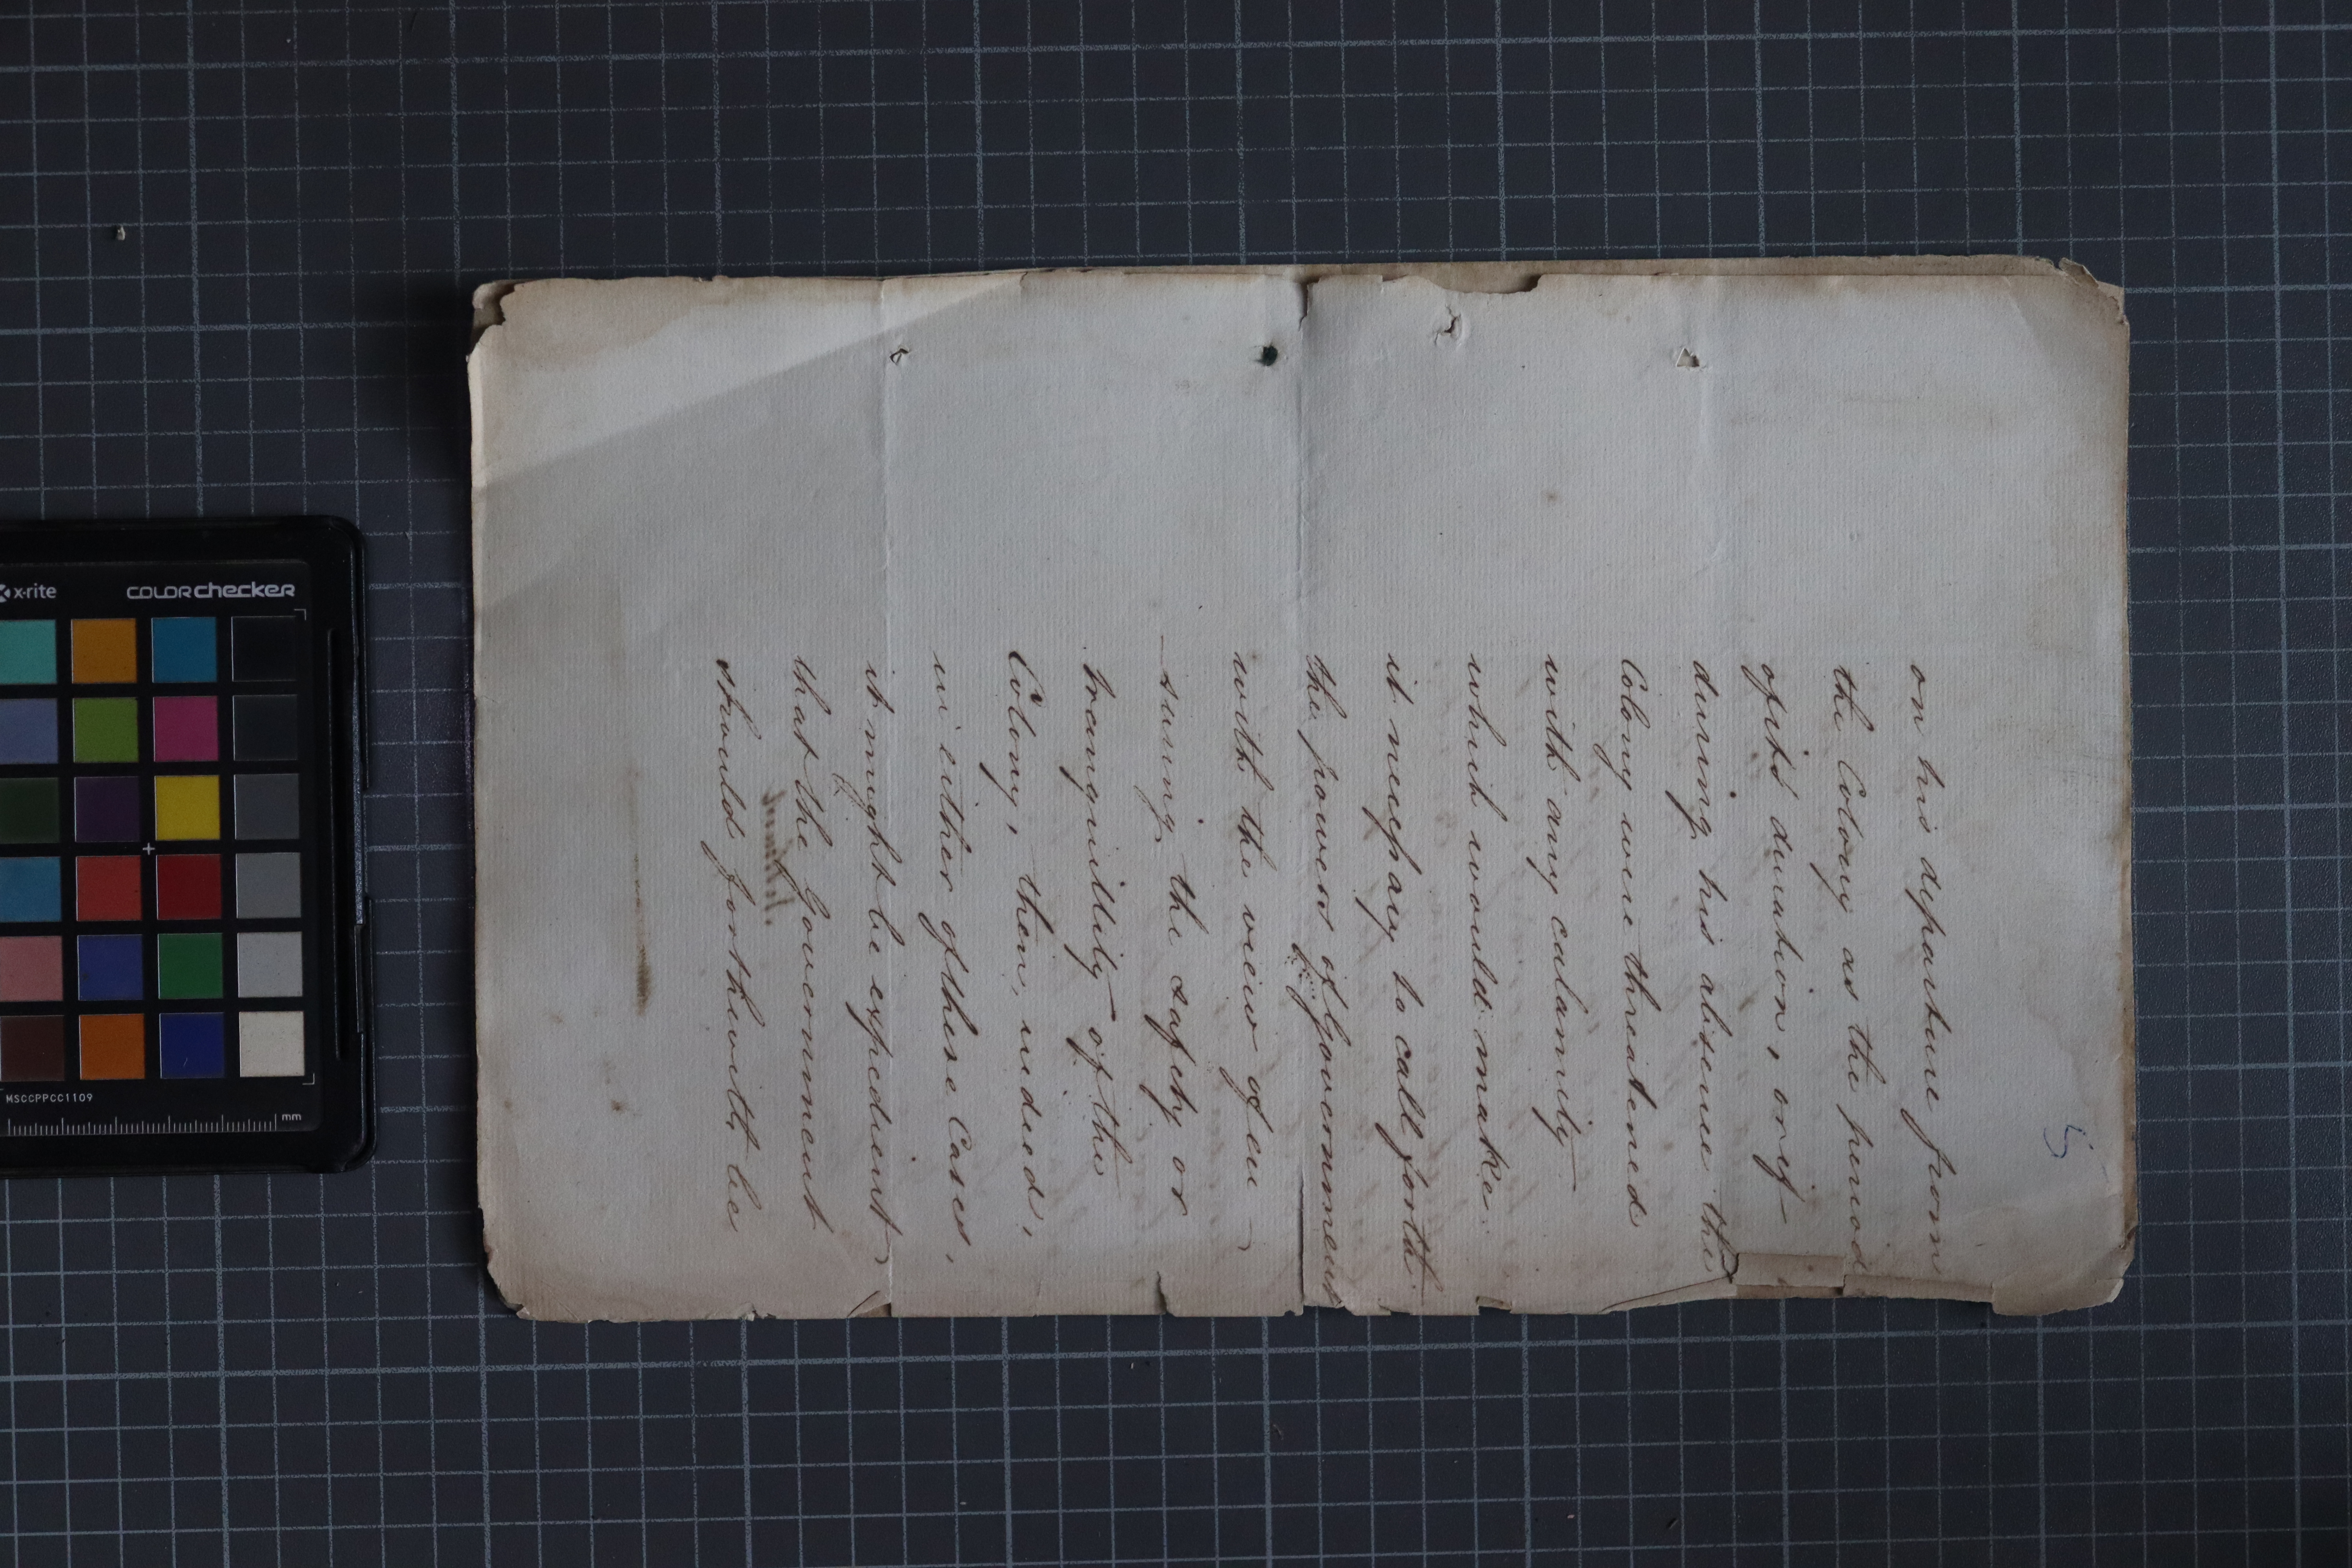 5
on his departure from
the Colony as the period
of its duration, or if
during his absence the
Colony were threatened
with any calamity
which would make
it necessary to call forth
the powers of Government
with the view of en
-suring the safety or
tranquillity of the
Colony, then, indeed,
in either of these Cases,
it might be expedient
that the Government
should forthwith be
x-rite
COLORchecker
MSCCPPCC1109
mm